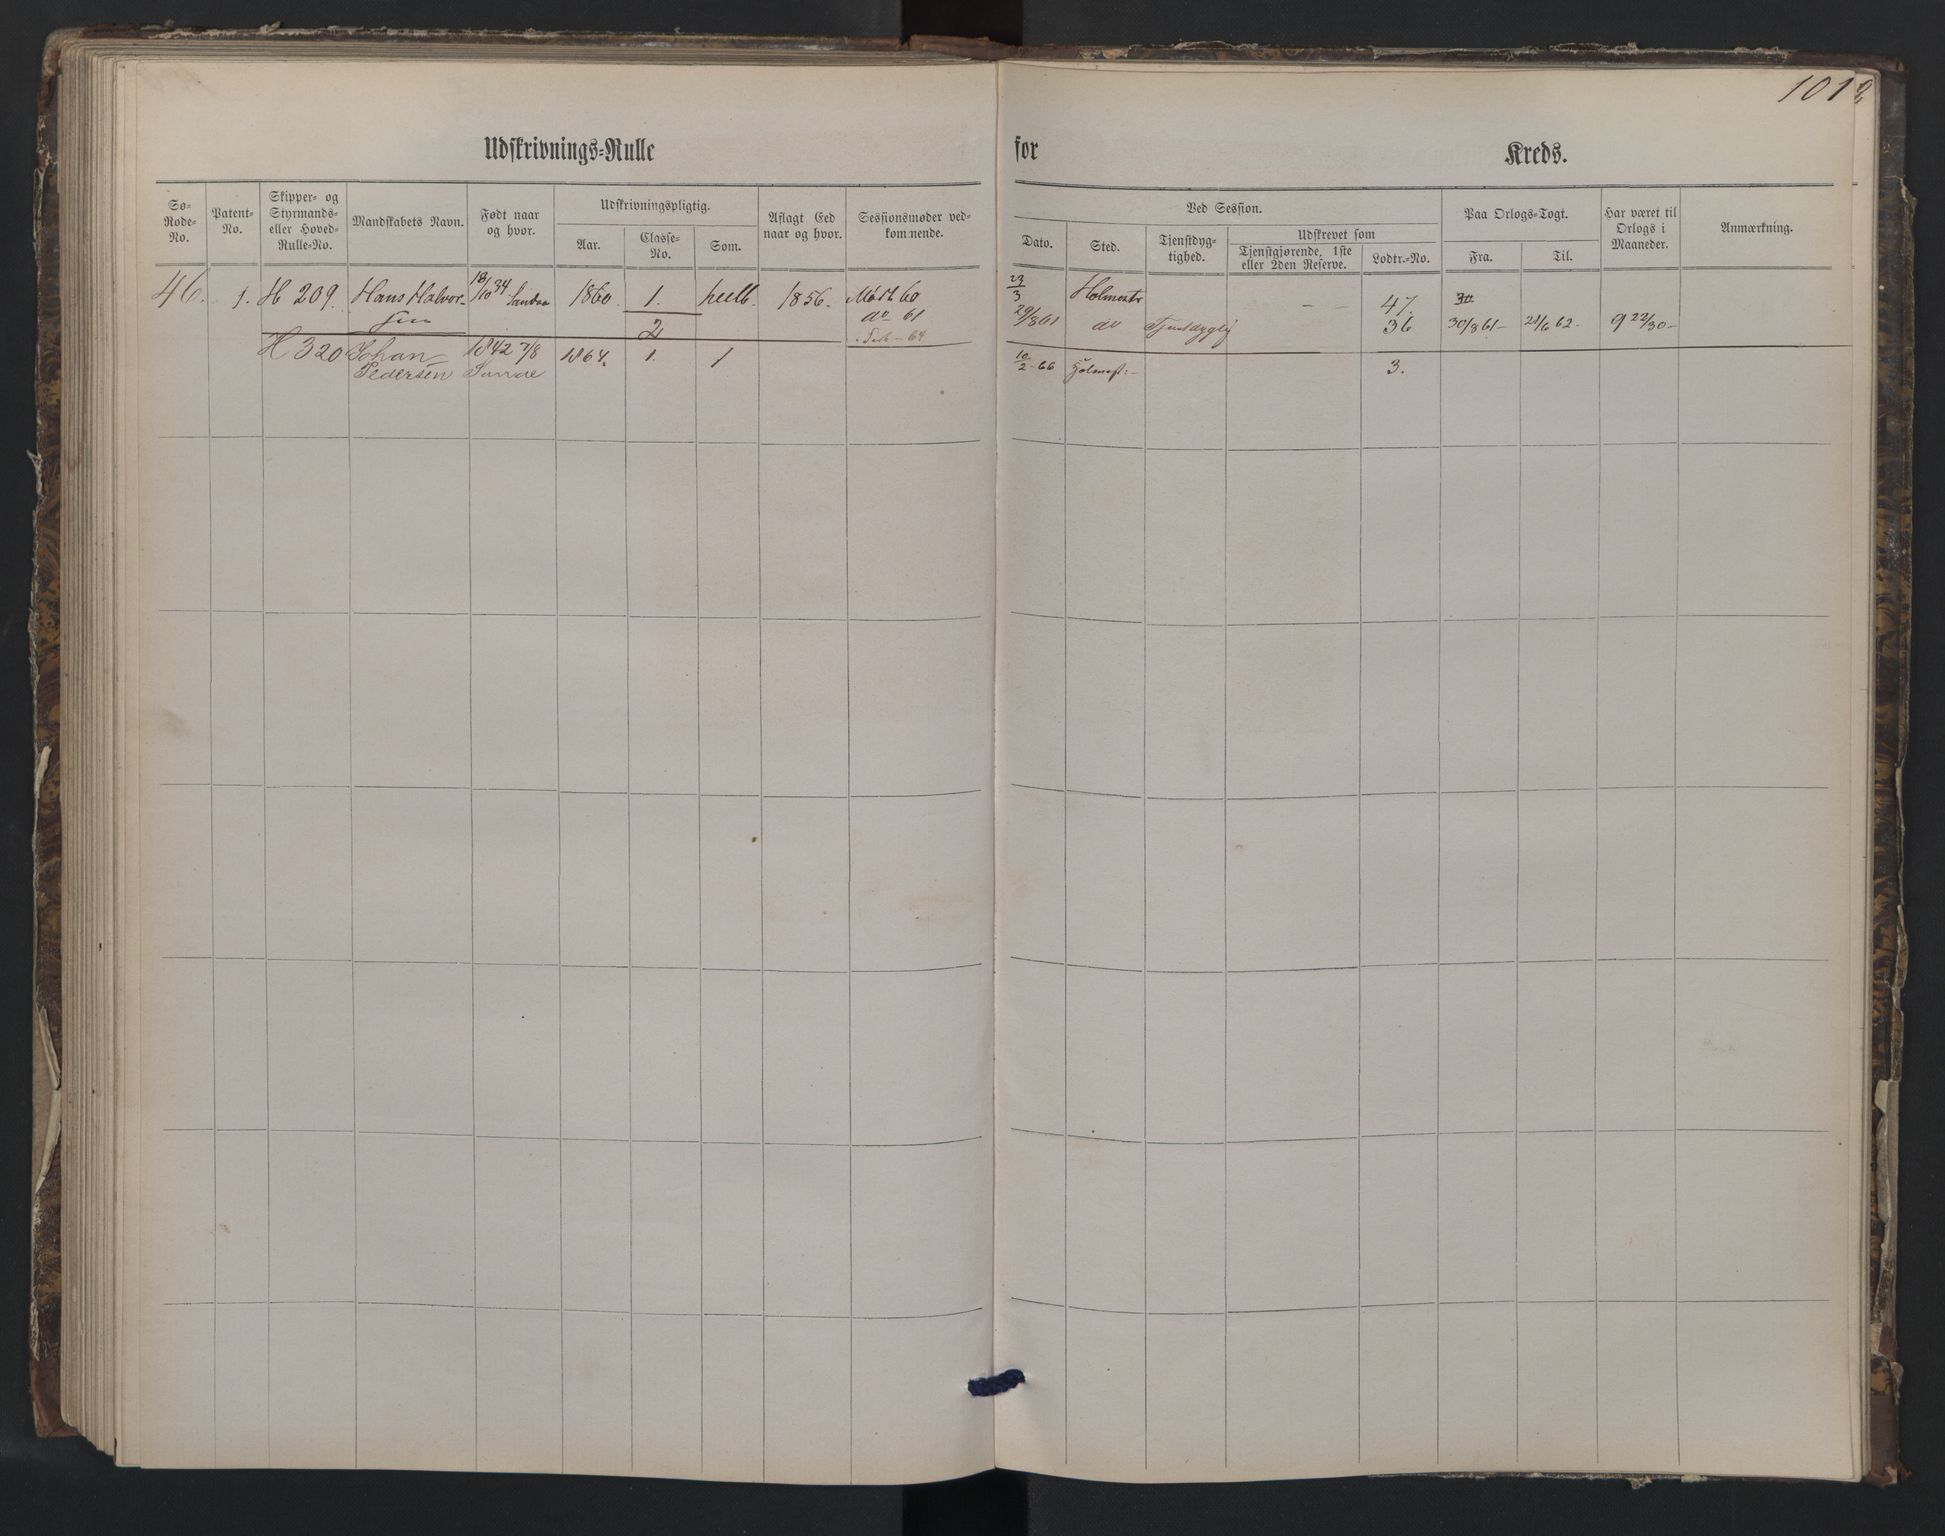 101
Udskrivnings-Rulle for Kreds.
Sø-Rode-No.
Patent-No.
Skipper- og Styrmands- eller Hoved-Rulle-No.
Mandskabets Navn.
Født naar og hvor.
Udskrivningspligtig.
Aar.
Classe-No.
Som.
Aflagt Eed naar og hvor.
Sessionsmøder vedkommende.
Ved Session.
Dato.
Sted.
Tjenstdygtighed.
Udskrevet som
Tjenstgjørende, 1ste eller 2den Reserve.
Lodtr.-No.
Paa Orlogs-Togt.
Fra.
Til.
Har været til Orlogs i Maaneder.
Anmærkning.
46. 1. H 209. Hans Halvor- 18/10 34 1860. 1. 1856. Mødt 60 23/3 47. 30
sen 2 do 61 29/8 61 do 36 30/8 61- 21/6 62. 9 22/30-
64
H 320 Johan 1842 7/8 1864. 1. 1 10/2-66 3.
Pedersen Sande